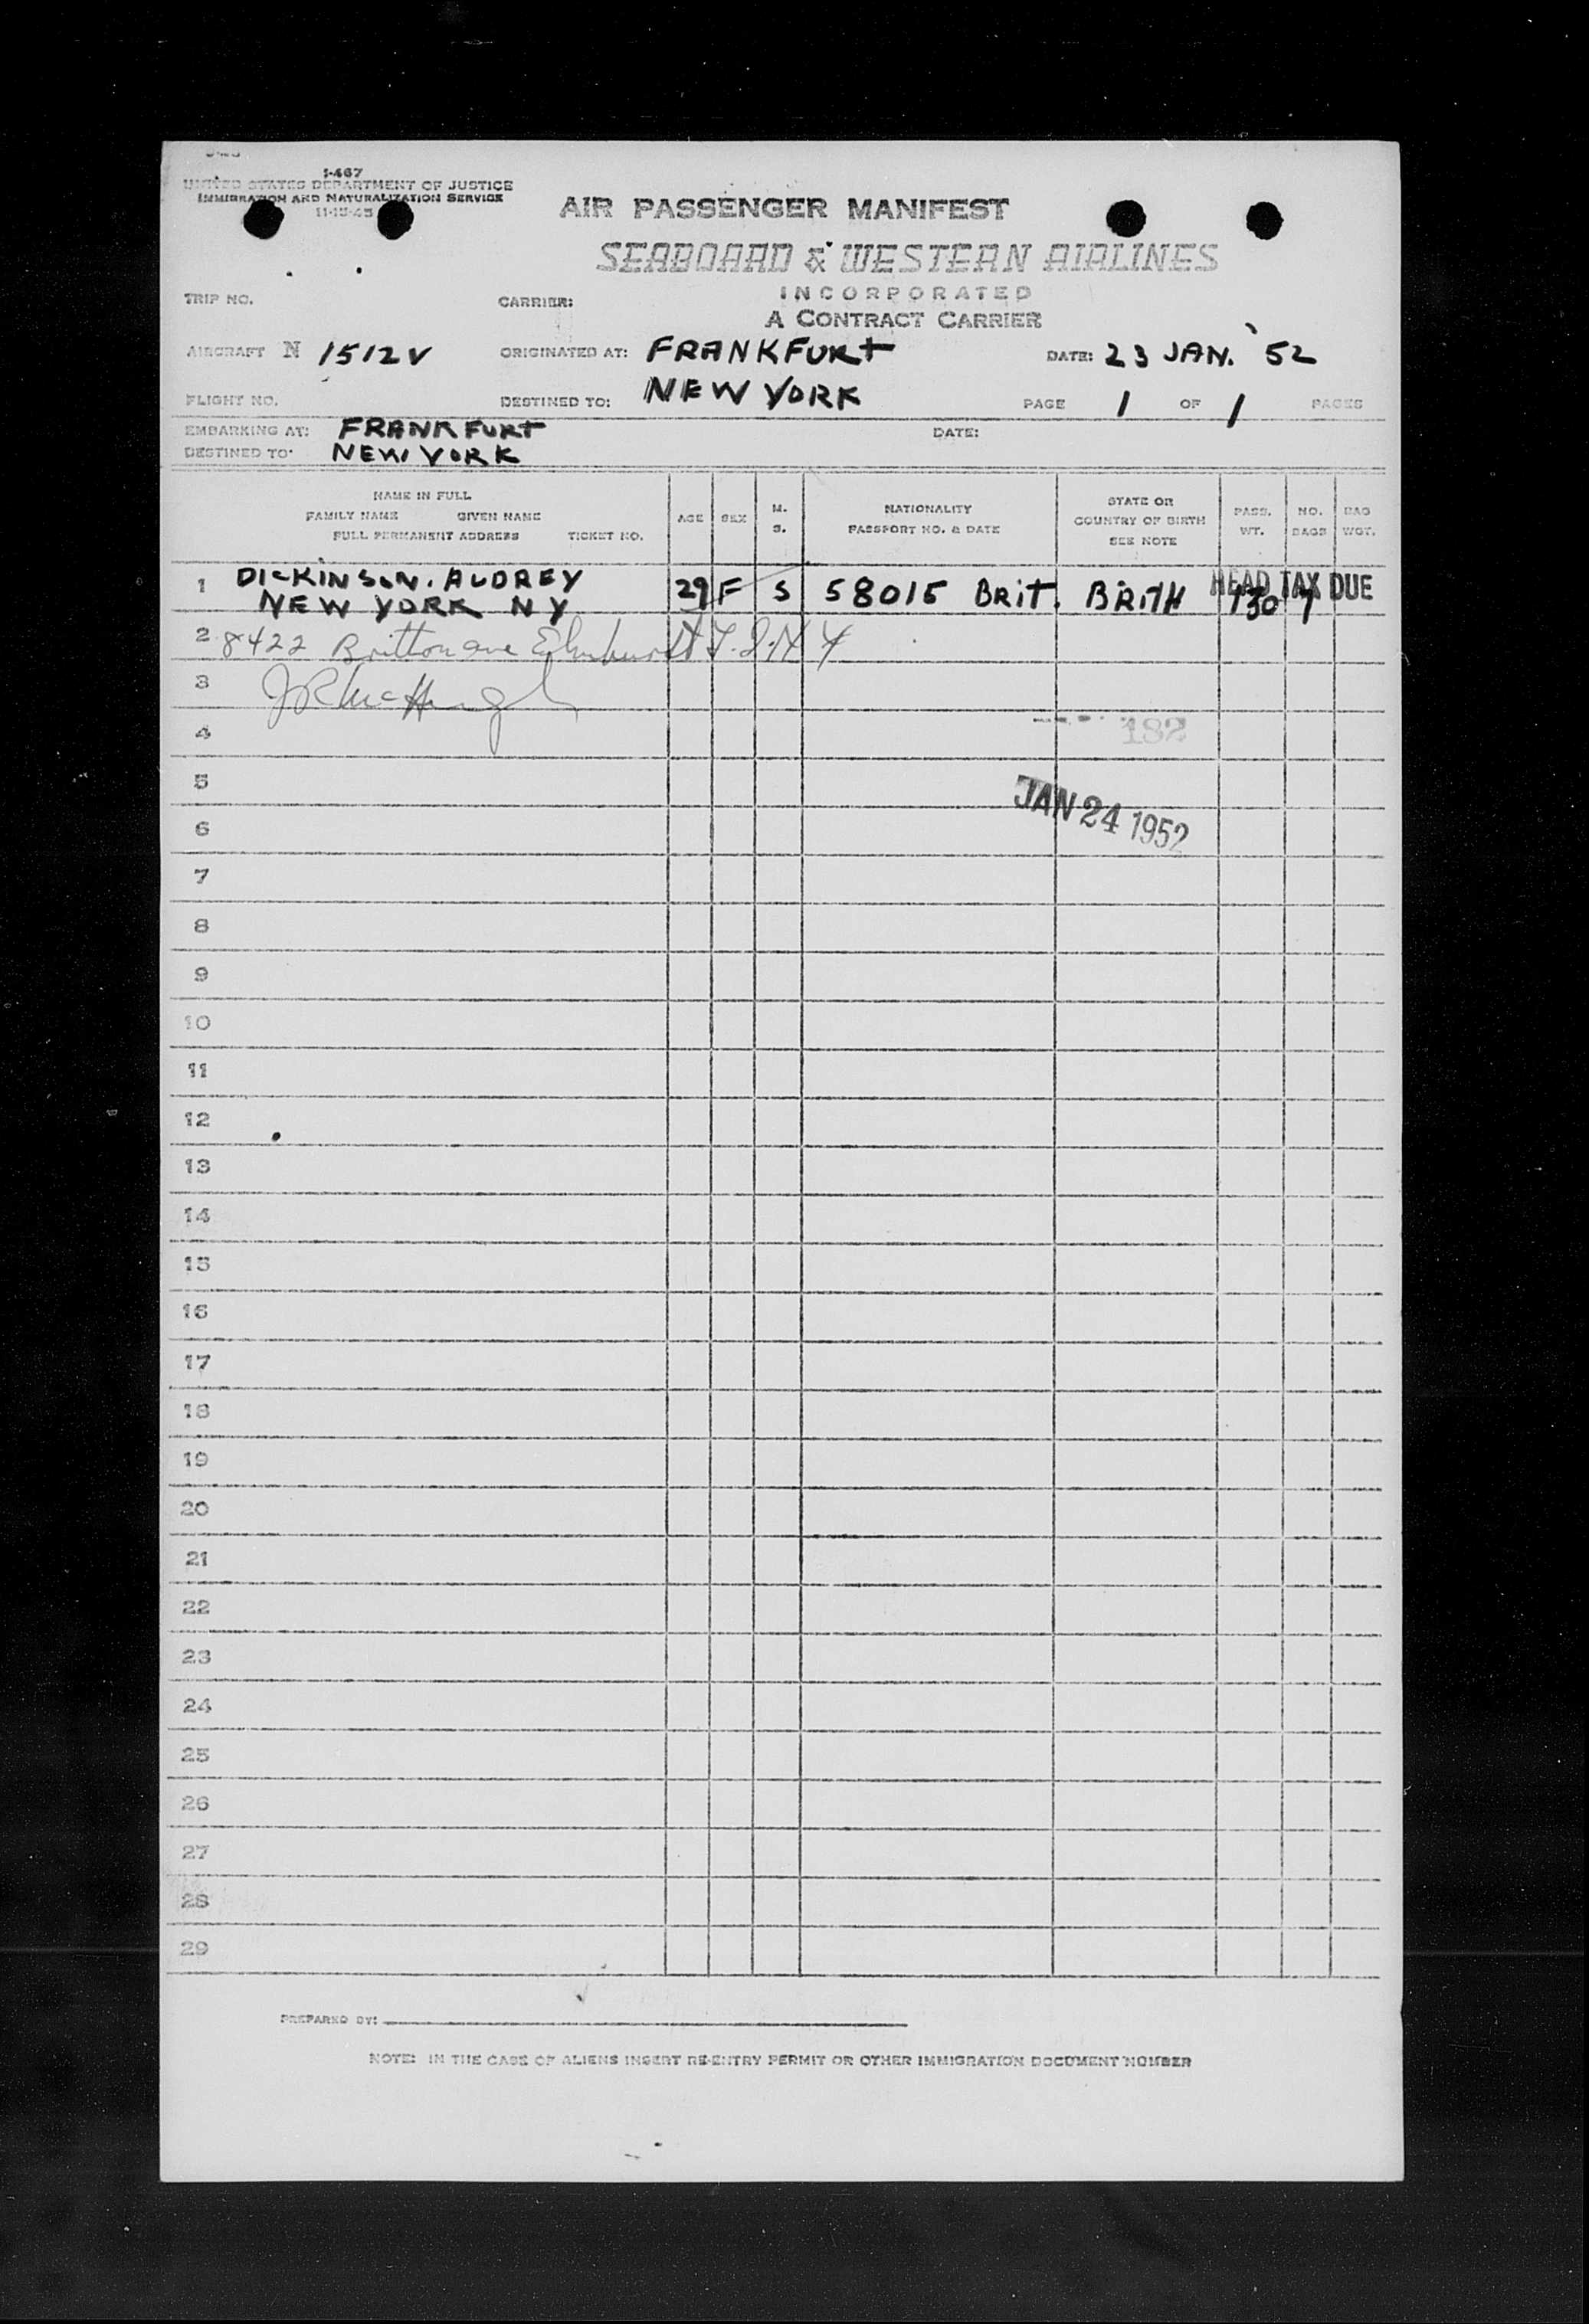 I-467
UNITED STATES DEPARTMENT OF JUSTICE
IMMIGRATION AND NATURALIZATION SERVICE
11-15-45
AIR PASSENGER MANIFEST
SEABOARD & WESTERN AIRLINES
INCORPORATED
A CONTRACT CARRIER
TRIP NO. CARRIER:
AIRCRAFT N 1512V ORIGINATED AT: FRANKFURT DATE: 23 JAN. '52
FLIGHT NO. DESTINED TO: NEW YORK PAGE 1 OF 1 PAGES
EMBARKING AT: FRANKFURT DATE:
DESTINED TO: NEW YORK
NAME IN FULL
FAMILY NAME GIVEN NAME
FULL PERMANENT ADDRESS TICKET NO.
AGE SEX M. S.
NATIONALITY
PASSPORT NO. & DATE
STATE OR
COUNTRY OF BIRTH
SEE NOTE
PASS. WT. NO. BAGS BAG WGT.
1 DICKINSON. AUDREY 29 F S 58015 BRIT. BRITH 130 7
HEAD TAX DUE
NEW YORK NY
2 8422 Britton ave Elmhurst L.I. N Y
3 J R McHugh
4 182
5
JAN 24 1952
6
7
8
9
10
11
12
13
14
15
16
17
18
19
20
21
22
23
24
25
26
27
28
29
PREPARED BY:
NOTE: IN THE CASE OF ALIENS INSERT RE-ENTRY PERMIT OR OTHER IMMIGRATION DOCUMENT NUMBER